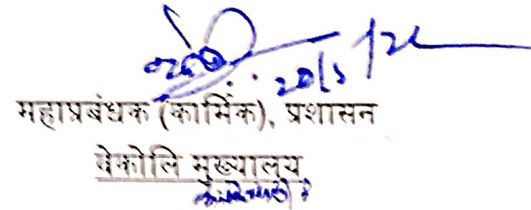 20/3/24
महाप्रबंधक (कार्मिक), प्रशासन
वेकोलि मुख्यालय